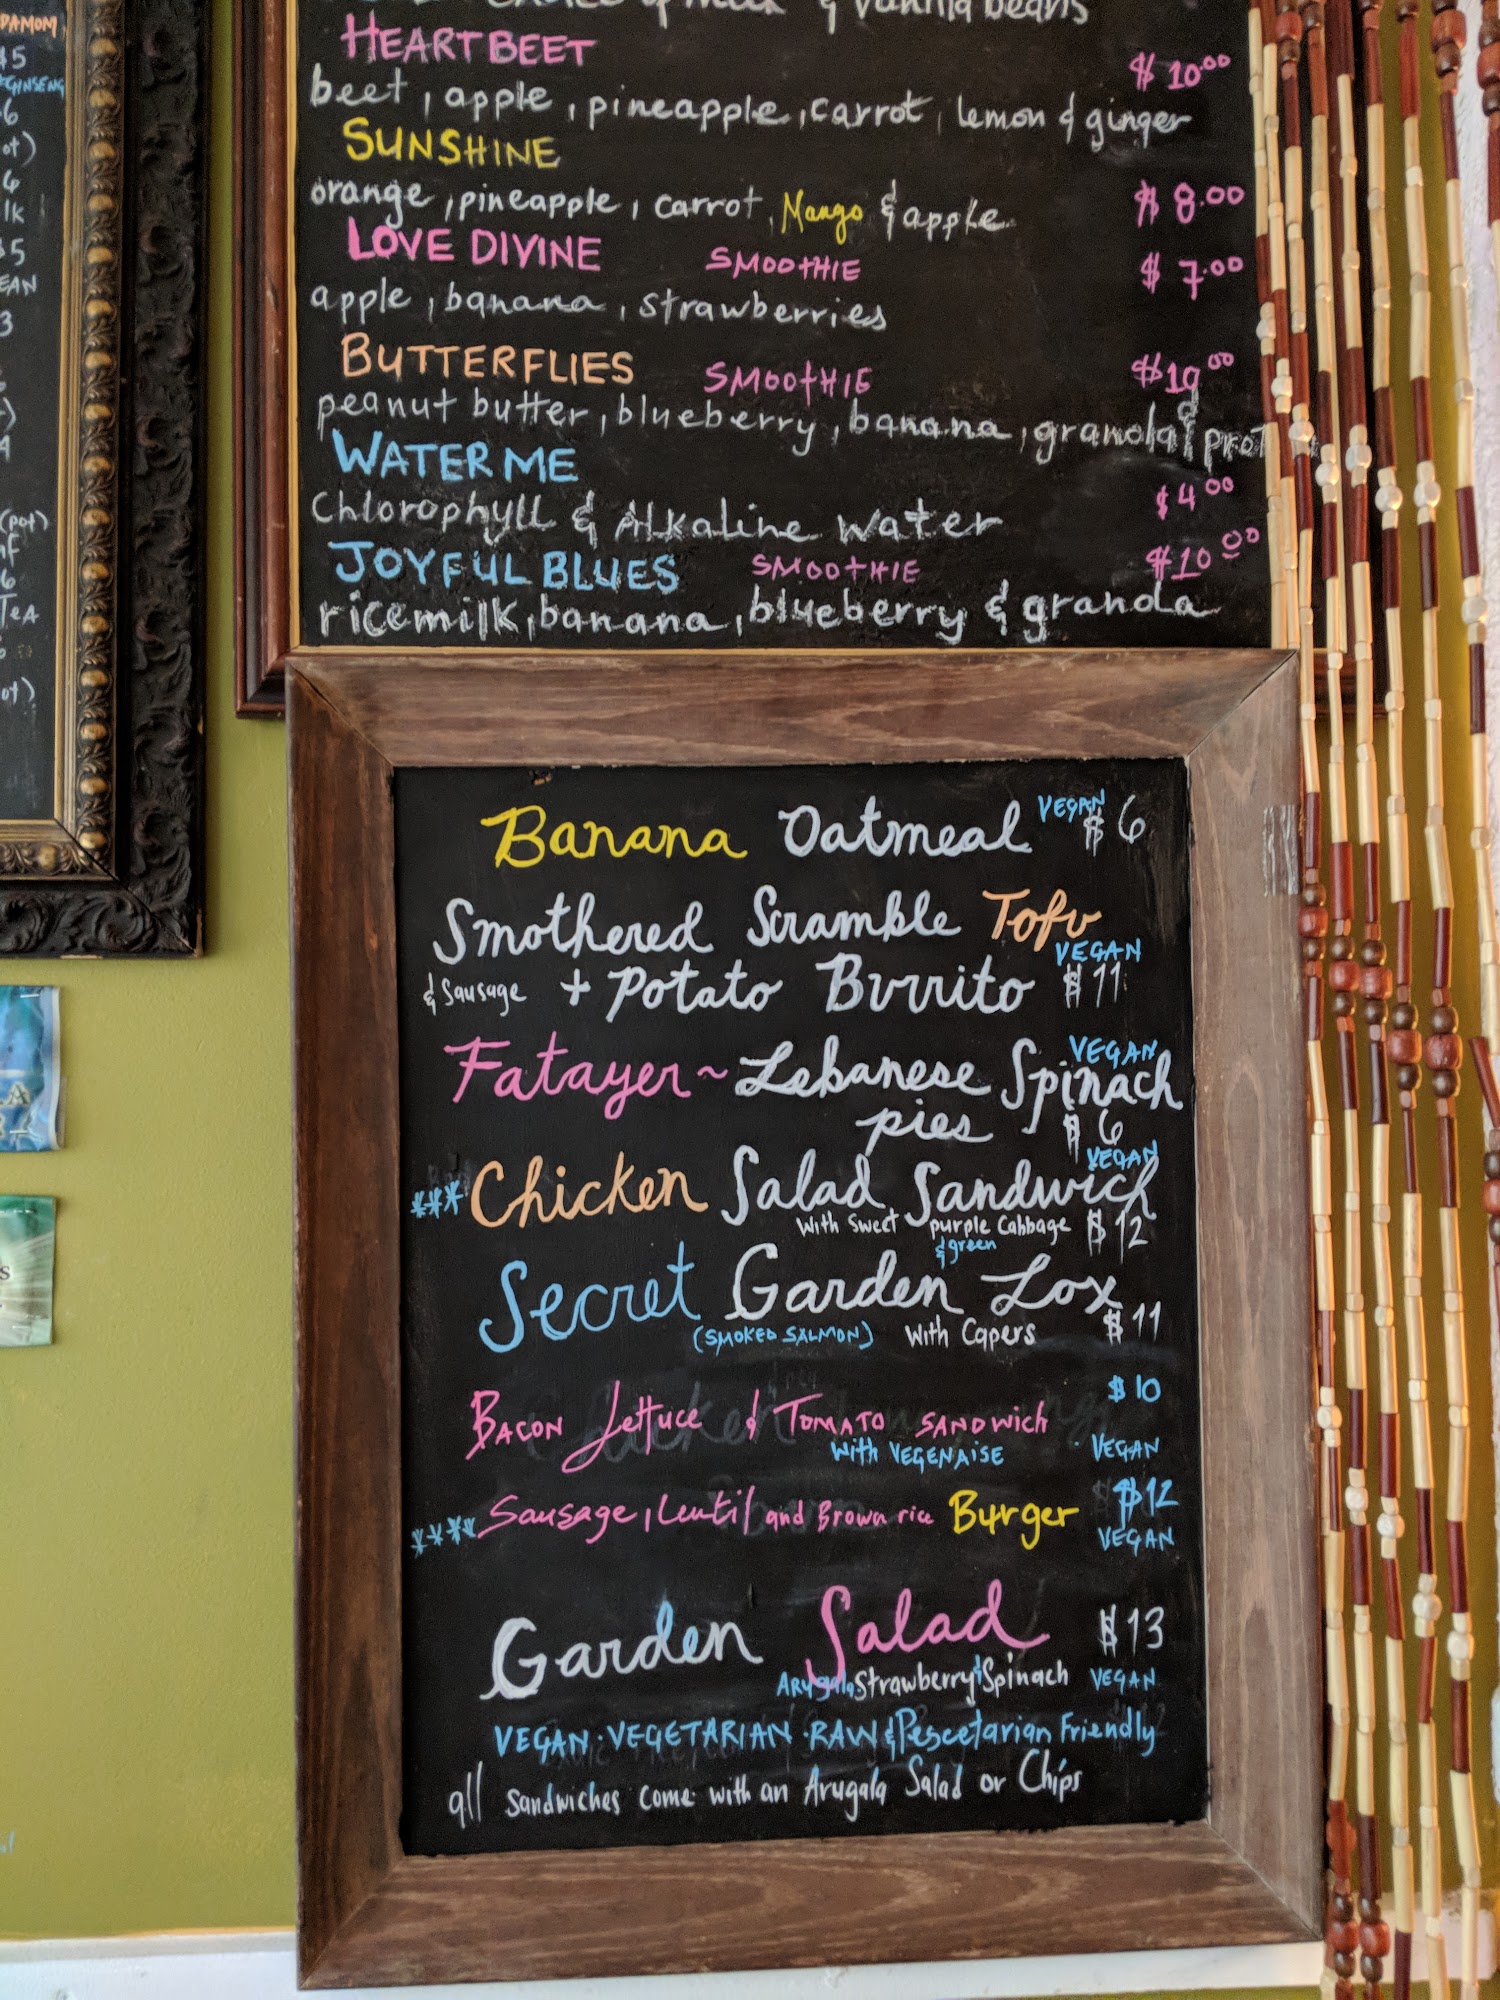 DAMOM
$5
+GINSENG
6
ot)
6
lk
$5
EAN
3
4
(pot)
6
TEA
ot)
& vanilla beans
HEART BEET
$10.00
beet, apple, pineapple, carrot, lemon & ginger
SUNSHINE
orange, pineapple, carrot, Mango & apple
$8.00
LOVE DIVINE SMOOTHIE $7.00
apple, banana, strawberries
BUTTERFLIES SMOOTHIE $10.00
peanut butter, blueberry, banana, granola & prot
WATER ME
Chlorophyll & Alkaline water $4.00
JOYFUL BLUES SMOOTHIE $10.00
ricemilk, banana, blueberry & granola
Banana Oatmeal VEGAN $6
Smothered Scramble Tofu
VEGAN
& Sausage + Potato Burrito $11
Fatayer ~ Lebanese Spinach VEGAN
pies $6
*** Chicken Salad Sandwich VEGAN
with sweet purple Cabbage $12
& green
Secret Garden Lox
(SMOKED SALMON) with Capers $11
$10
BACON Lettuce & TOMATO SANDWICH
with VEGENAISE VEGAN
**** Sausage, Lentil and Brown rice Burger $12
VEGAN
Garden Salad $13
Arugala, Strawberry & Spinach VEGAN
VEGAN · VEGETARIAN · RAW & Pescetarian Friendly
all Sandwiches come with an Arugala Salad or Chips